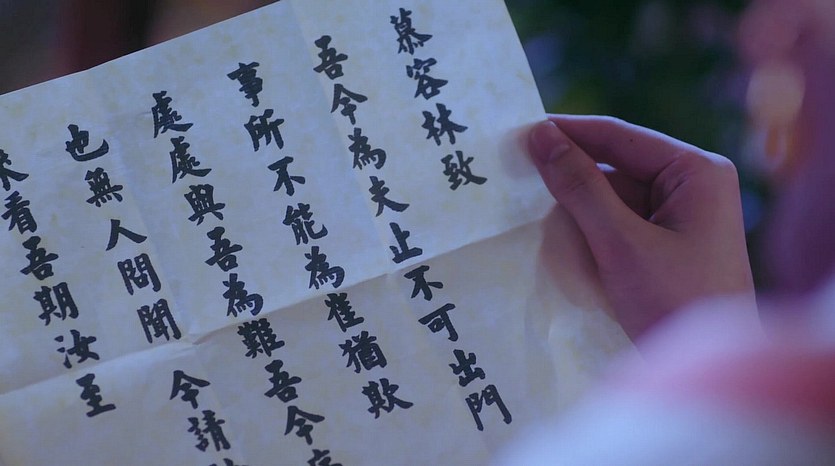 慕容林致
吾今為夫止不可出門
事所不能為崔猶欺
處處與吾為難吾今
也無人問聞 今請
來看吾期汝至